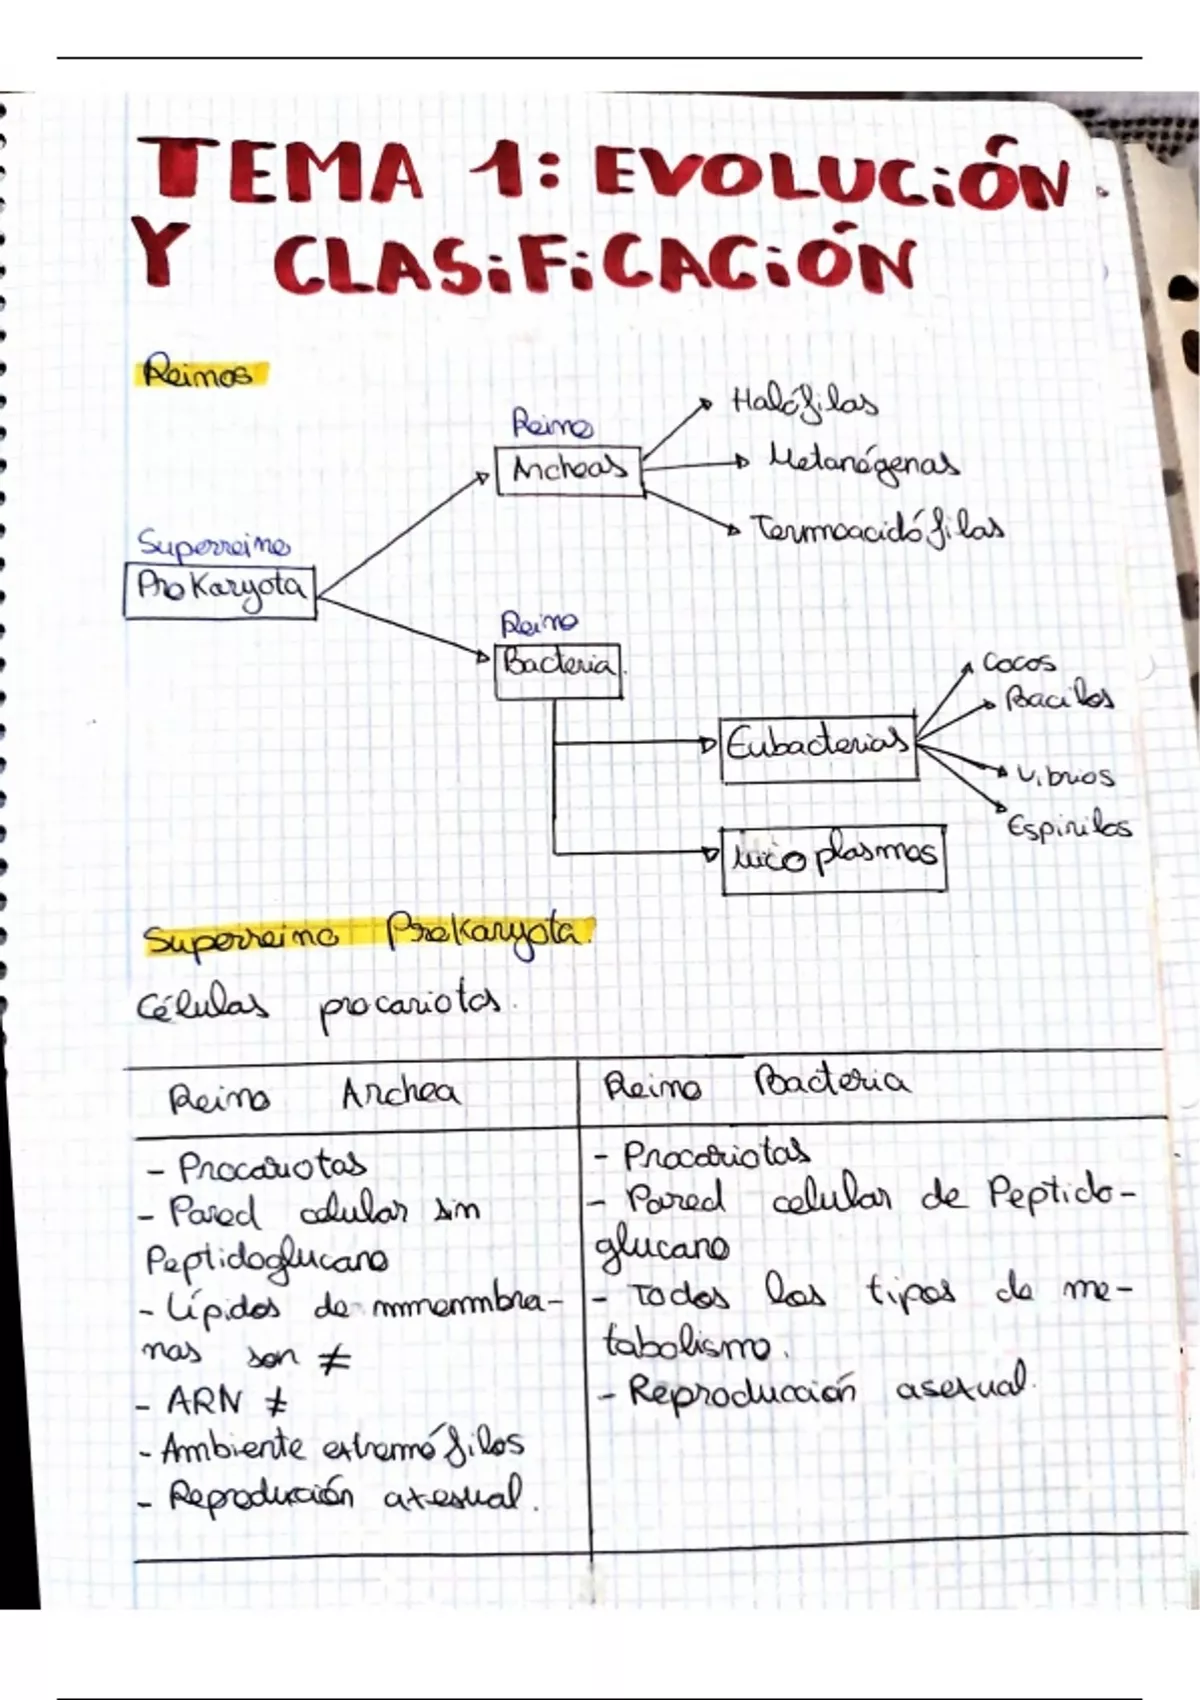 TEMA 1: EVOLUCIÓN
Y CLASIFICACIÓN
Reinos
Reino
Archeas
Halófilas
Metanógenas
Termoacidófilas
Superreino
Prokaryota
Reino
Bacteria
Eubacterias
Cocos
Bacilos
Vibrios
Espirilos
Micoplasmas
Superreino Prokaryota.
Células procariotas.
Reino Archea
- Procariotas
- Pared celular sin
Peptidoglucano
- Lípidos de mmembra-
nas son ≠
- ARN ≠
- Ambiente extremófilos
- Reproducción axesual.
Reino Bacteria
- Procariotas
- Pared celular de Peptido-
glucano
- Todos los tipos de me-
tabolismo.
- Reproducción asexual.